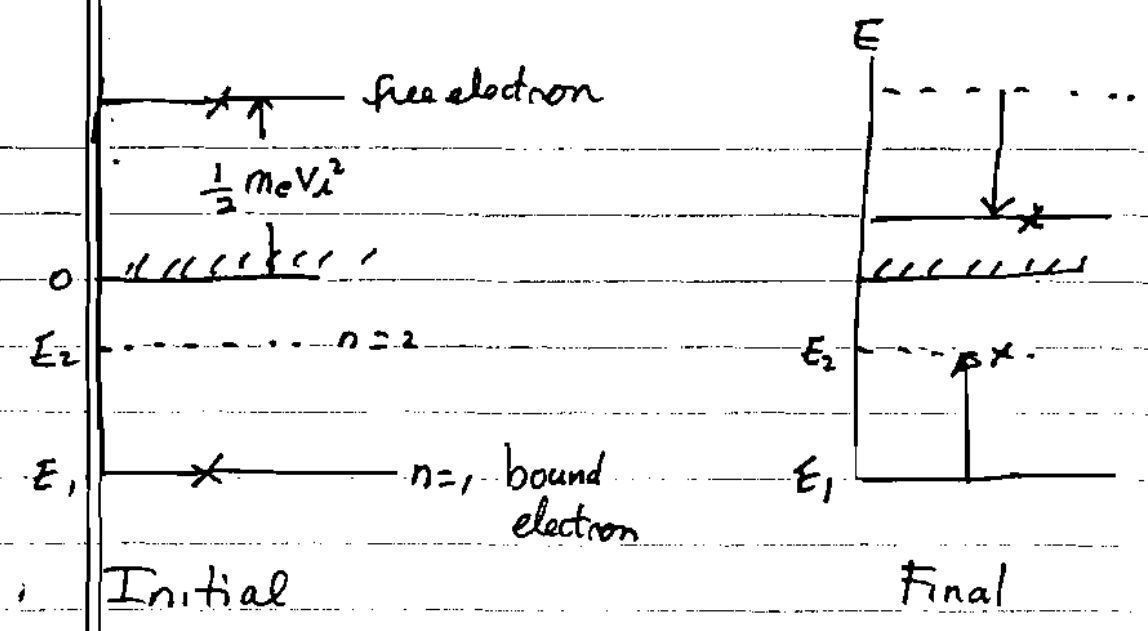 E
free electron
½ mₑvᵢ²
0
E₂ n = 2
E₂
E₁ n=1 bound
electron
E₁
Initial
Final